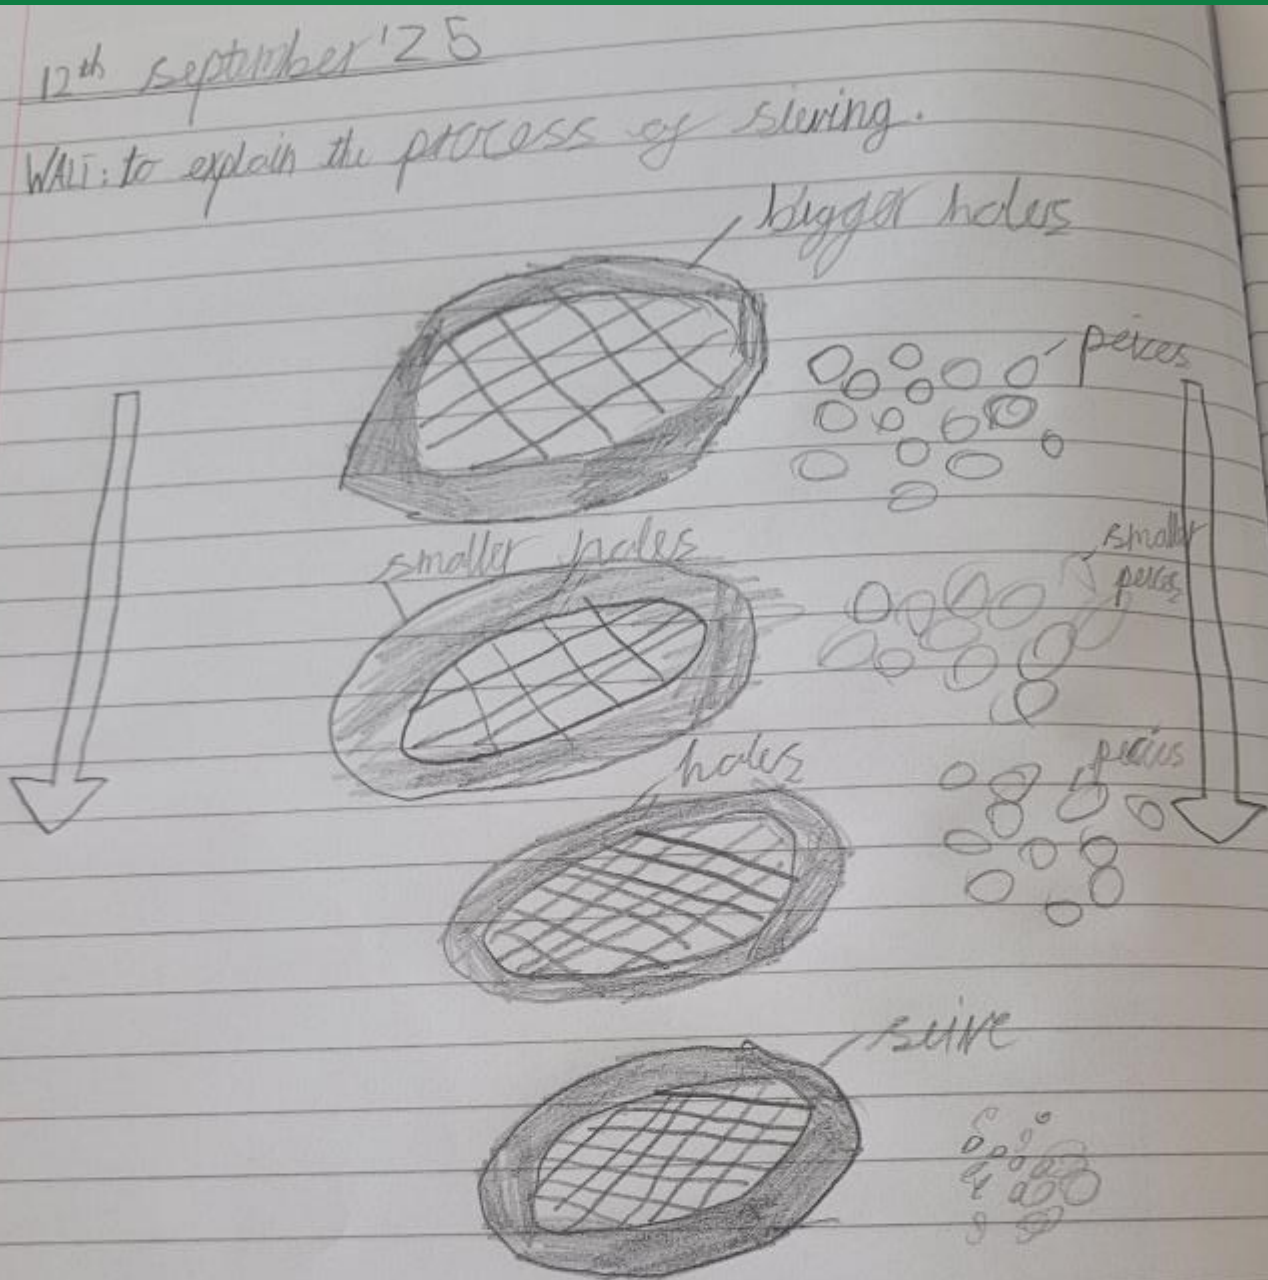 12th september '25
WALT: to explain the process of sieving.
bigger holes
peices
smaller holes
smaller
peices
holes
peices
seive